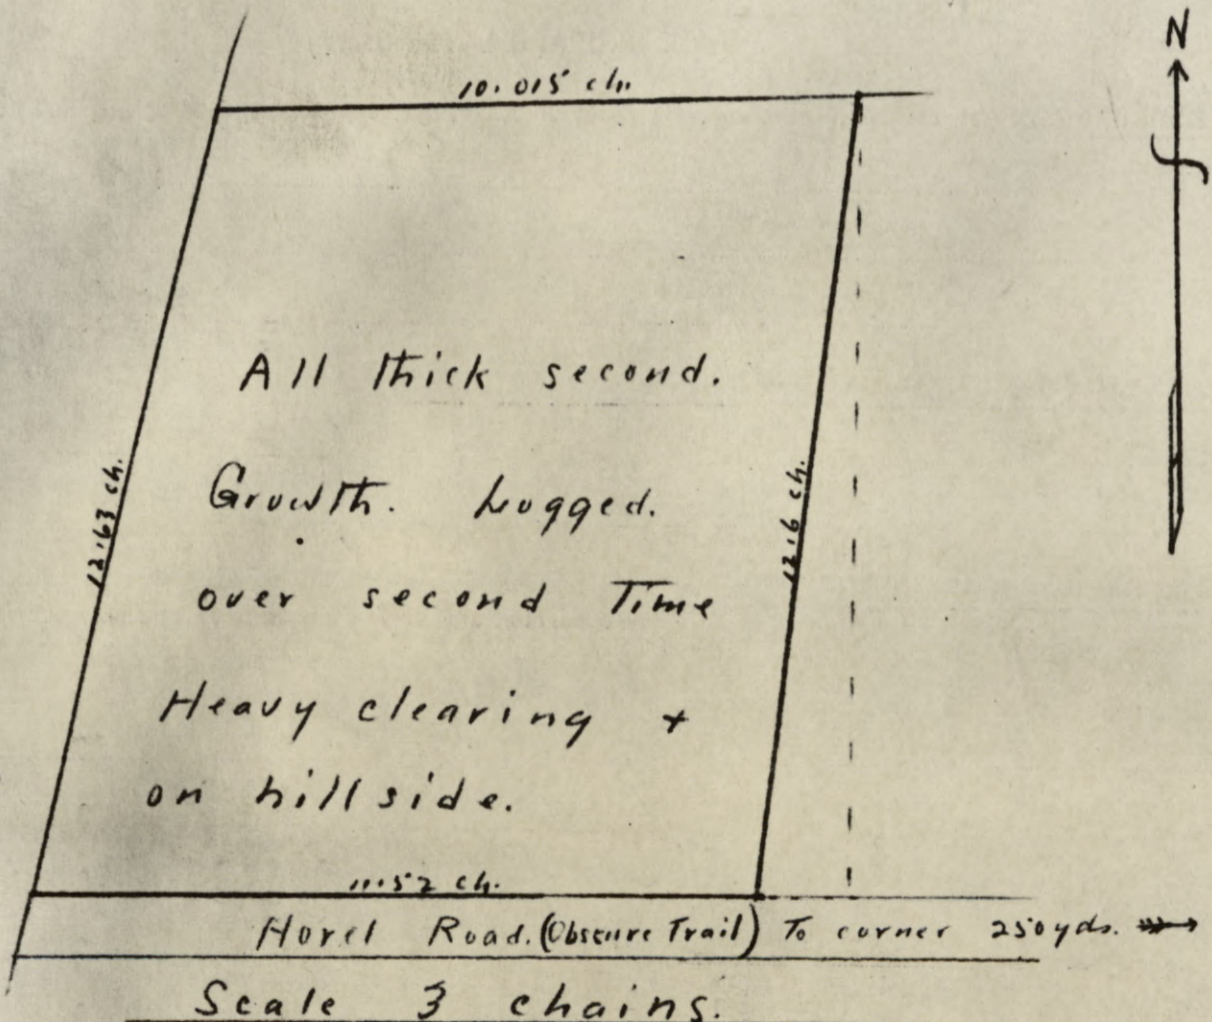 N
10.015 ch.
All thick second.
Growth. Logged.
12.63 ch.
12.6 ch.
over second Time
Heavy clearing +
on hillside.
11.52 ch.
Horel Road. (Obscure Trail) To corner 250 yds.
Scale 3 chains.